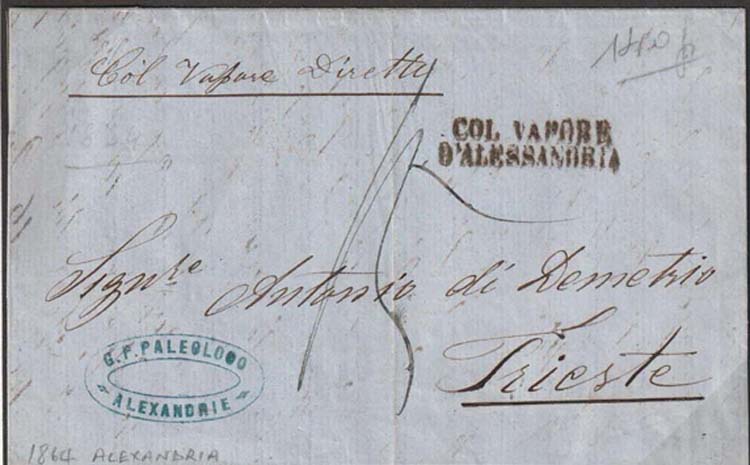 Col Vapore Diretto
COL VAPORE
D'ALESSANDRIA
15
Signre Antonio di Demetrio
Trieste
G. P. PALEOLOGO
ALEXANDRIE
1864 ALEXANDRIA